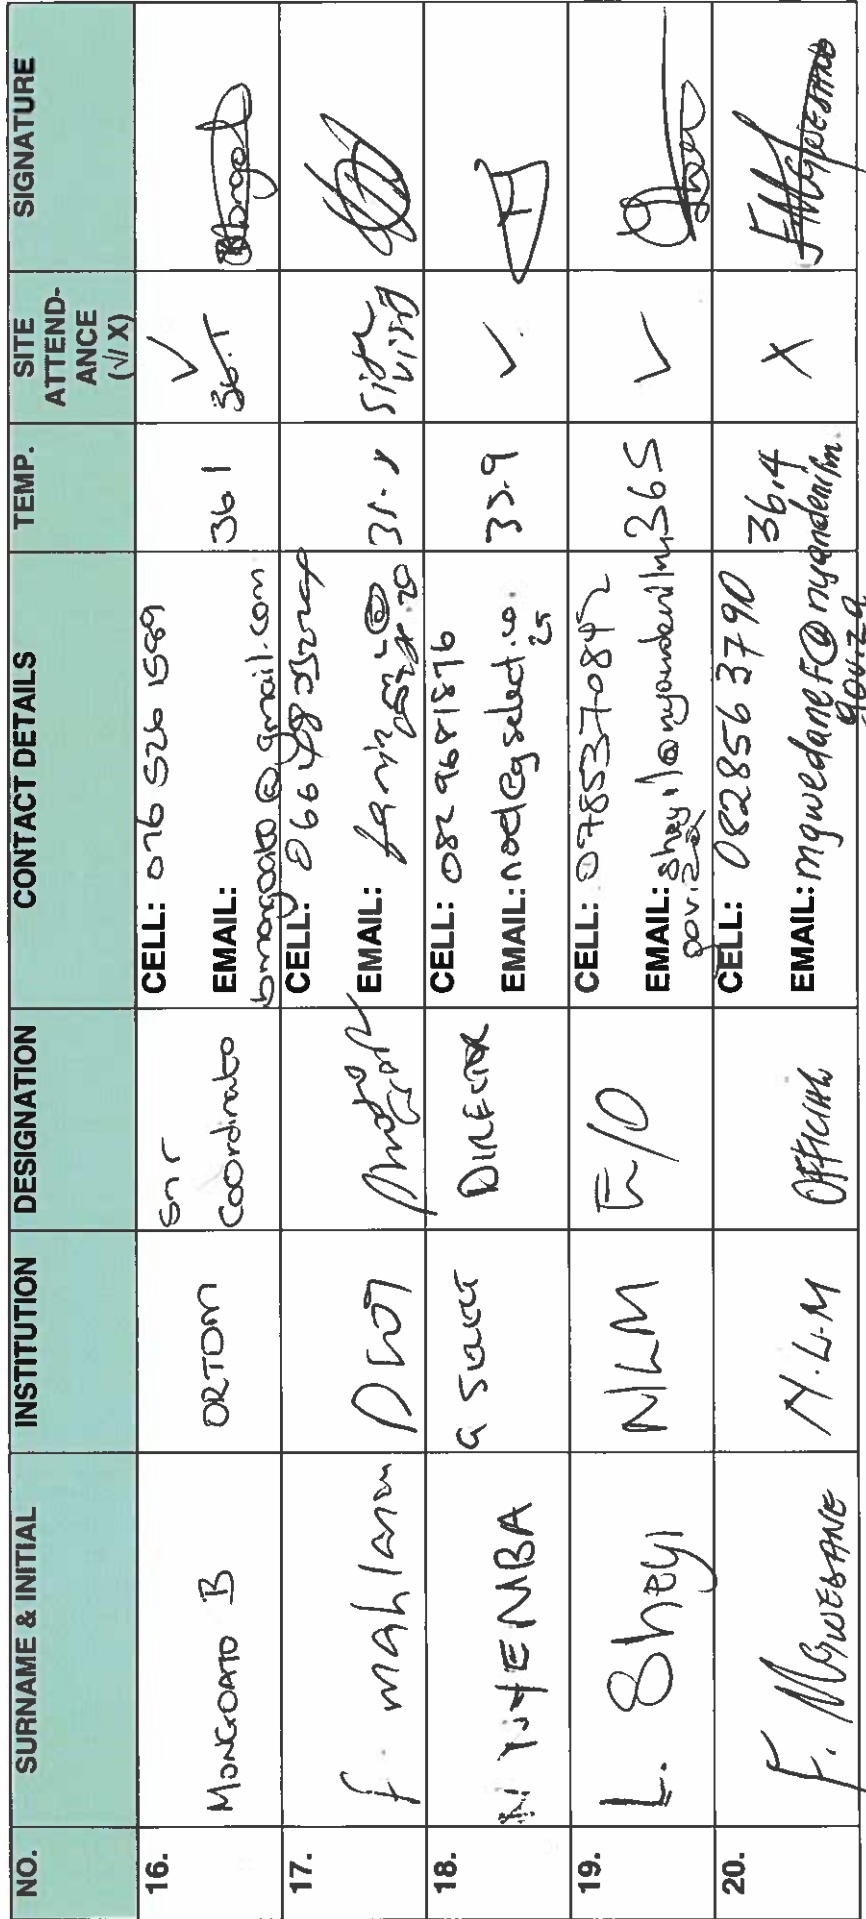 NO.
SURNAME & INITIAL
INSTITUTION
DESIGNATION
CONTACT DETAILS
TEMP.
SITE
ATTEND-
ANCE
(√/ X)
SIGNATURE
16.
MONGOATO B
ORTDM
Snr
Coordinato
CELL: 076 526 1589
EMAIL:
bmongoato@gmail.com
36.1
√
36.1
17.
f. mahlam
CELL: 066
EMAIL:
18.
NTYEMBA
DIRECTOR
CELL: 082 968 1876
EMAIL: noel@gselect.co.
za
35.9
√
19.
L. Sheyi
NLM
CELL: 0785370842
EMAIL: sheyil@nyandenilm.
gov.za
365
√
20.
F. MGWEDANE
N.L.M
OFFICIAL
CELL: 082856 3790
EMAIL: mgwedanef@nyandenilm.
gov.za
36.4
X